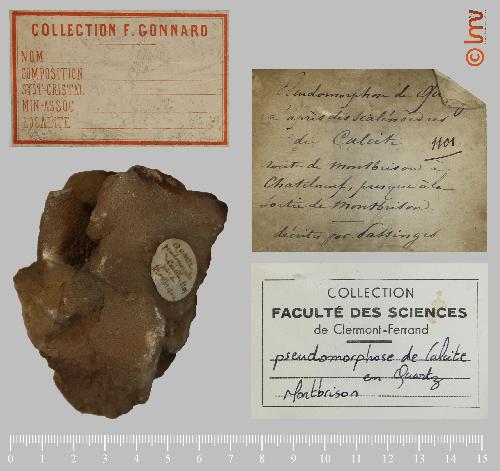 COLLECTION F. GONNARD
NOM
COMPOSITION
SYST-CRISTAL
MIN-ASSOC
LOCALITE
Pseudomorphose de
d'après des scalénoèdres
de Calcite
1101
route de Montbrison à
Chatelneuf, presque à la
sortie de Montbrison.
décrite par Passinges
Quartz
pseudomorph
Calcite
COLLECTION
FACULTÉ DES SCIENCES
de Clermont-Ferrand
pseudomorphose de Calcite
en Quartz
Montbrison
© lmv
0 1 2 3 4 5 6 7 8 9 10 11 12 13 14 15